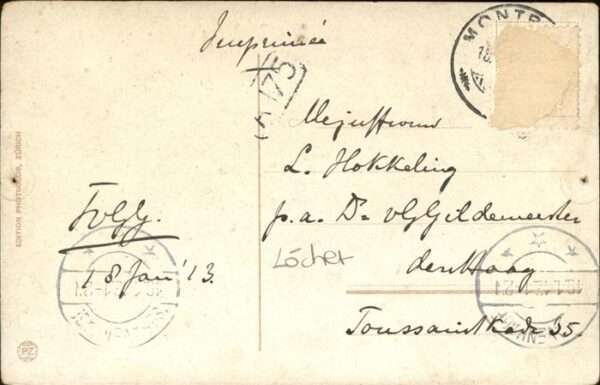 Imprimée
MONTR
A 175
Mejuffrouw
L. Hokkeling
p.a. Dr v Gildemeester
den Haag
Toussaintkade 35.
Löcher
18 Jan '13.
EDITION PHOTOGLOB, ZÜRICH
PZ